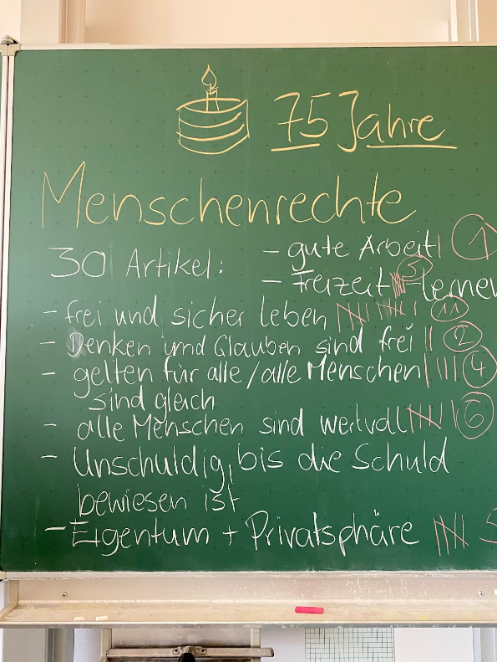 75 Jahre
Menschenrechte
30 Artikel: - gute Arbeit | 1
- Freizeit 5 - lernen
- frei und sicher leben 11
- Denken und Glauben sind frei || 2
- gelten für alle / alle Menschen |||| 4
sind gleich
- alle Menschen sind wertvoll 6
- Unschuldig, bis die Schuld
bewiesen ist
- Eigentum + Privatsphäre 5